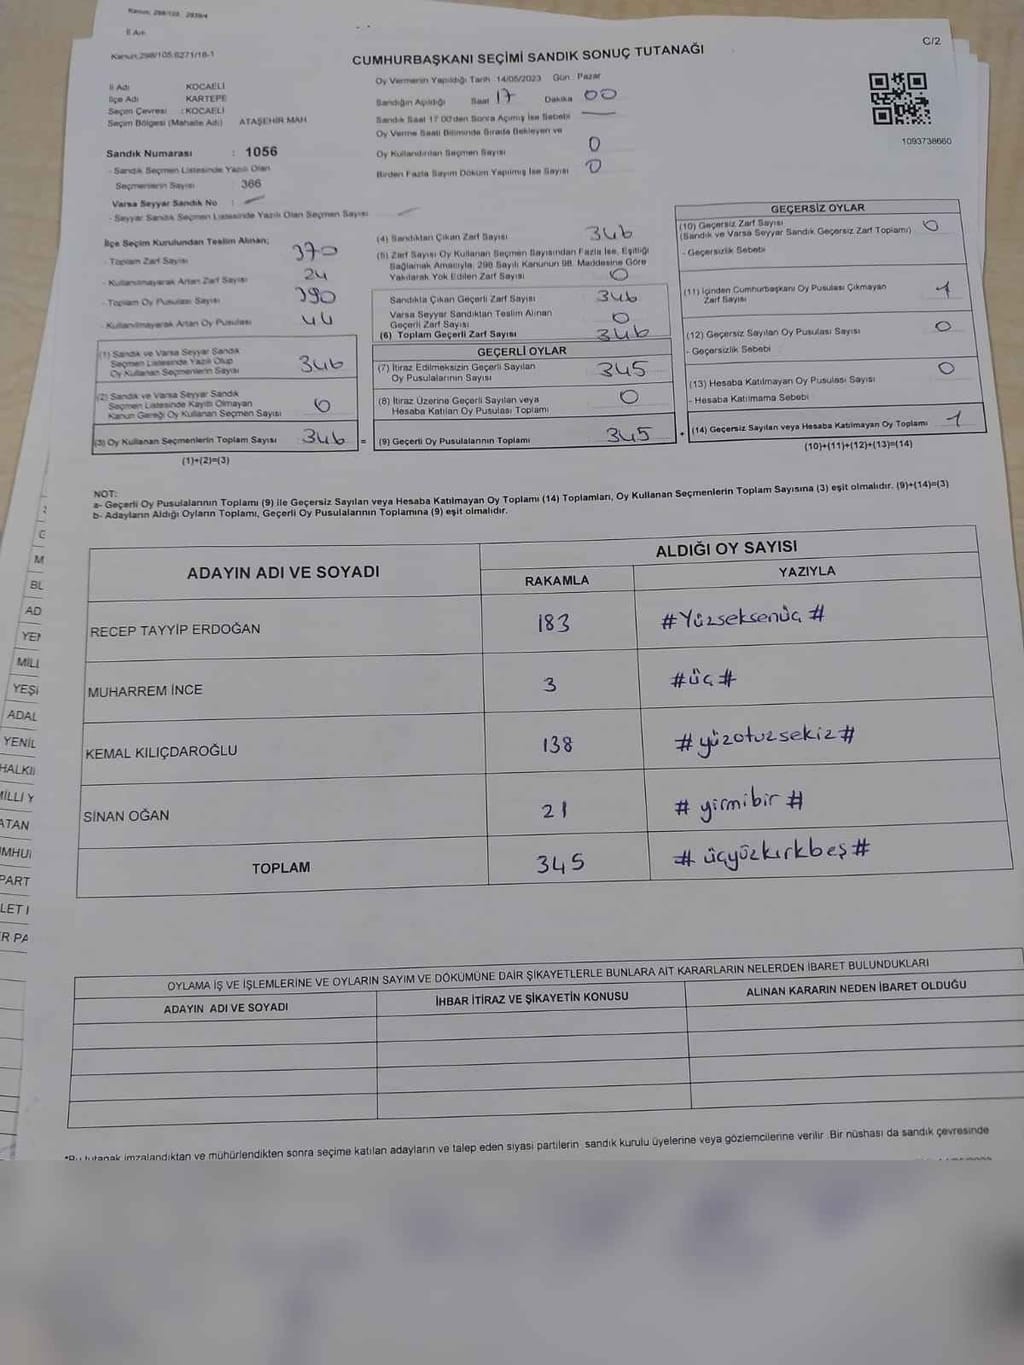 Kanun: 298/105 2839/4
İl Adı
Kanun:298/105:6271/18-1
C/2
CUMHURBAŞKANI SEÇİMİ SANDIK SONUÇ TUTANAĞI
İl Adı KOCAELİ
İlçe Adı KARTEPE
Seçim Çevresi : KOCAELİ
Seçim Bölgesi (Mahalle Adı) ATAŞEHİR MAH
Sandık Numarası : 1056
- Sandık Seçmen Listesinde Yazılı Olan
Seçmenlerin Sayısı 366
Varsa Seyyar Sandık No :
- Seyyar Sandık Seçmen Listesinde Yazılı Olan Seçmen Sayısı
Oy Vermenin Yapıldığı Tarih 14/05/2023 Gün : Pazar
Sandığın Açıldığı Saat 17 Dakika 00
Sandık Saat 17:00'den Sonra Açılmış İse Sebebi
Oy Verme Saati Bitiminde Sırada Bekleyen ve
Oy Kullandırılan Seçmen Sayısı 0
Birden Fazla Sayım Döküm Yapılmış İse Sayısı 0
1093738660
İlçe Seçim Kurulundan Teslim Alınan;
- Toplam Zarf Sayısı 370
- Kullanılmayarak Artan Zarf Sayısı 24
- Toplam Oy Pusulası Sayısı 390
- Kullanılmayarak Artan Oy Pusulası 44
(1) Sandık ve Varsa Seyyar Sandık
Seçmen Listesinde Yazılı Olup
Oy Kullanan Seçmenlerin Sayısı 346
(2) Sandık ve Varsa Seyyar Sandık
Seçmen Listesinde Kayıtlı Olmayan
Kanun Gereği Oy Kullanan Seçmen Sayısı 0
(3) Oy Kullanan Seçmenlerin Toplam Sayısı 346 =
(1)+(2)=(3)
(4) Sandıktan Çıkan Zarf Sayısı 346
(5) Zarf Sayısı Oy Kullanan Seçmen Sayısından Fazla İse, Eşitliği
Sağlamak Amacıyla, 298 Sayılı Kanunun 98. Maddesine Göre
Yakılarak Yok Edilen Zarf Sayısı 0
Sandıkta Çıkan Geçerli Zarf Sayısı 346
Varsa Seyyar Sandıktan Teslim Alınan
Geçerli Zarf Sayısı 0
(6) Toplam Geçerli Zarf Sayısı 346
GEÇERLİ OYLAR
(7) İtiraz Edilmeksizin Geçerli Sayılan
Oy Pusulalarının Sayısı 345
(8) İtiraz Üzerine Geçerli Sayılan veya
Hesaba Katılan Oy Pusulası Toplamı 0
(9) Geçerli Oy Pusulalarının Toplamı 345 +
GEÇERSİZ OYLAR
(10) Geçersiz Zarf Sayısı 0
(Sandık ve Varsa Seyyar Sandık Geçersiz Zarf Toplamı)
- Geçersizlik Sebebi
(11) İçinden Cumhurbaşkanı Oy Pusulası Çıkmayan
Zarf Sayısı 1
(12) Geçersiz Sayılan Oy Pusulası Sayısı 0
- Geçersizlik Sebebi
(13) Hesaba Katılmayan Oy Pusulası Sayısı 0
- Hesaba Katılmama Sebebi
(14) Geçersiz Sayılan veya Hesaba Katılmayan Oy Toplamı 1
(10)+(11)+(12)+(13)=(14)
NOT:
a- Geçerli Oy Pusulalarının Toplamı (9) ile Geçersiz Sayılan veya Hesaba Katılmayan Oy Toplamı (14) Toplamları, Oy Kullanan Seçmenlerin Toplam Sayısına (3) eşit olmalıdır. (9)+(14)=(3)
b- Adayların Aldığı Oyların Toplamı, Geçerli Oy Pusulalarının Toplamına (9) eşit olmalıdır.
ADAYIN ADI VE SOYADI ALDIĞI OY SAYISI
RAKAMLA YAZIYLA
RECEP TAYYİP ERDOĞAN 183 #Yüzseksenüç#
MUHARREM İNCE 3 #üç#
KEMAL KILIÇDAROĞLU 138 #yüzotuzsekiz#
SİNAN OĞAN 21 #yirmibir#
TOPLAM 345 #üçyüzkırkbeş#
OYLAMA İŞ VE İŞLEMLERİNE VE OYLARIN SAYIM VE DÖKÜMÜNE DAİR ŞİKAYETLERLE BUNLARA AİT KARARLARIN NELERDEN İBARET BULUNDUKLARI
ADAYIN ADI VE SOYADI İHBAR İTİRAZ VE ŞİKAYETİN KONUSU ALINAN KARARIN NEDEN İBARET OLDUĞU
*Bu tutanak imzalandıktan ve mühürlendikten sonra seçime katılan adayların ve talep eden siyasi partilerin sandık kurulu üyelerine veya gözlemcilerine verilir. Bir nüshası da sandık çevresinde
G
M
BL
AD
YEN
MİLL
YEŞİ
ADAL
YENİL
HALKI
MİLLİ Y
ATAN
UMHU
PART
LET
R PA